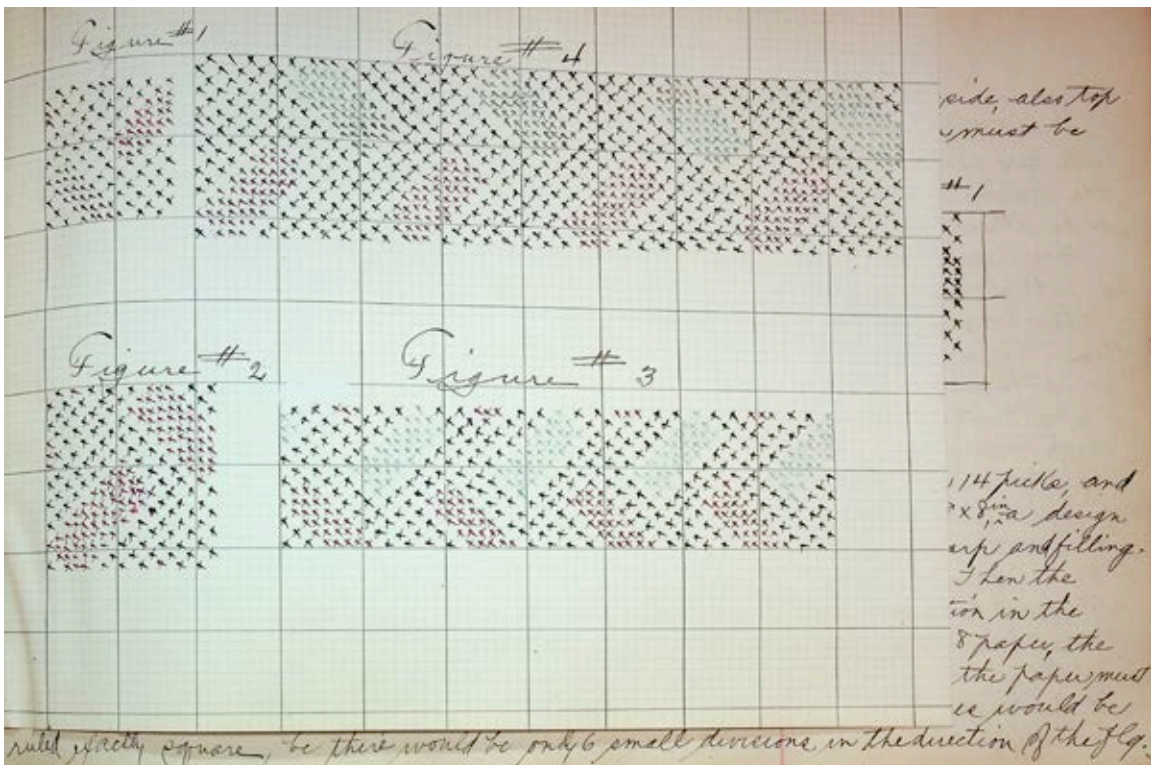 Figure #1
Figure #4
side, also top
must be
#1
Figure #2
Figure #3
14 picks, and
x 8 in a design
arp and filling.
Then the
ion in the
8 paper, the
the paper must
es would be
ruled exactly square, be there would be only 6 small divisions in the direction of the flg.